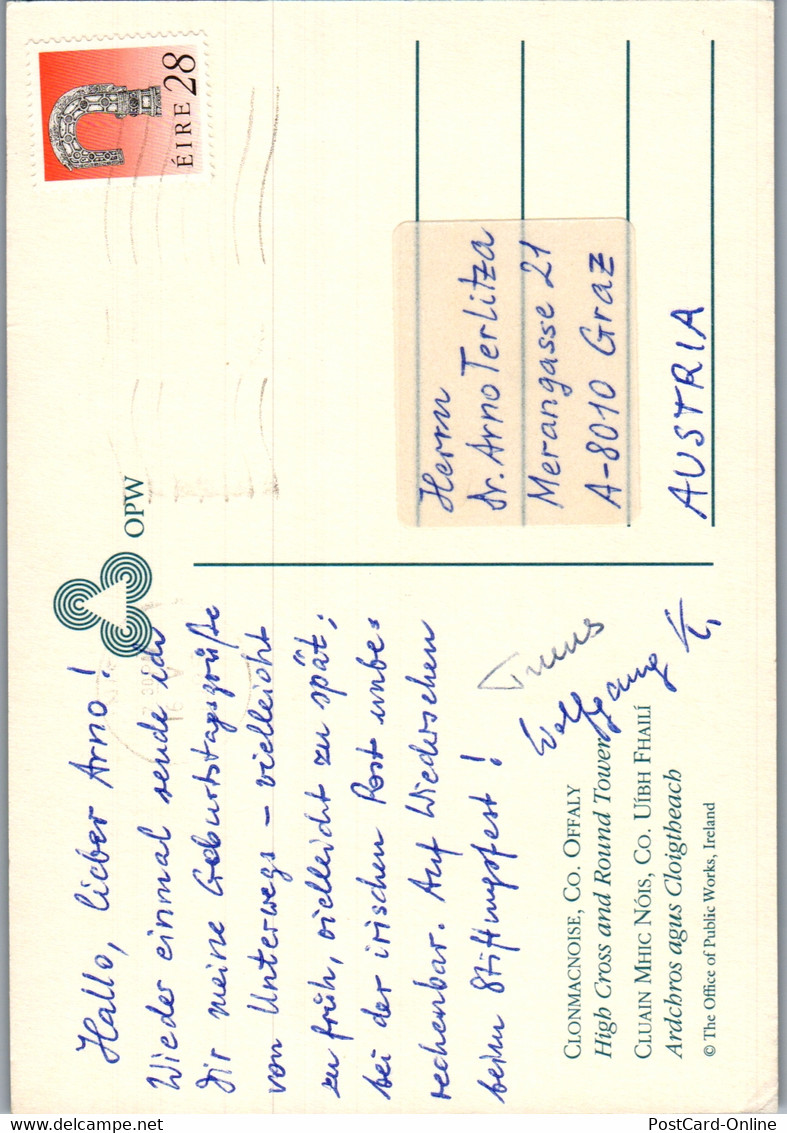 Hallo, lieber Arno!
Wieder einmal sende ich
Dir meine Geburtstagsgrüße
von Unterwegs – vielleicht
zu früh, vielleicht zu spät;
bei der irischen Post unbe=
rechenbar. Auf Wiedersehen
beim Stiftungsfest!
Wolfgang
CLONMACNOISE, CO. OFFALY
High Cross and Round Tower
CLUAIN MHIC NÓIS, CO. UÍBH FHAILÍ
Ardchros agus Cloigtheach
© The Office of Public Works, Ireland
OPW
ÉIRE 28
Herrn
Dr. Arno Terlitza
Merangasse 21
A-8010 Graz
AUSTRIA
PostCard-Online